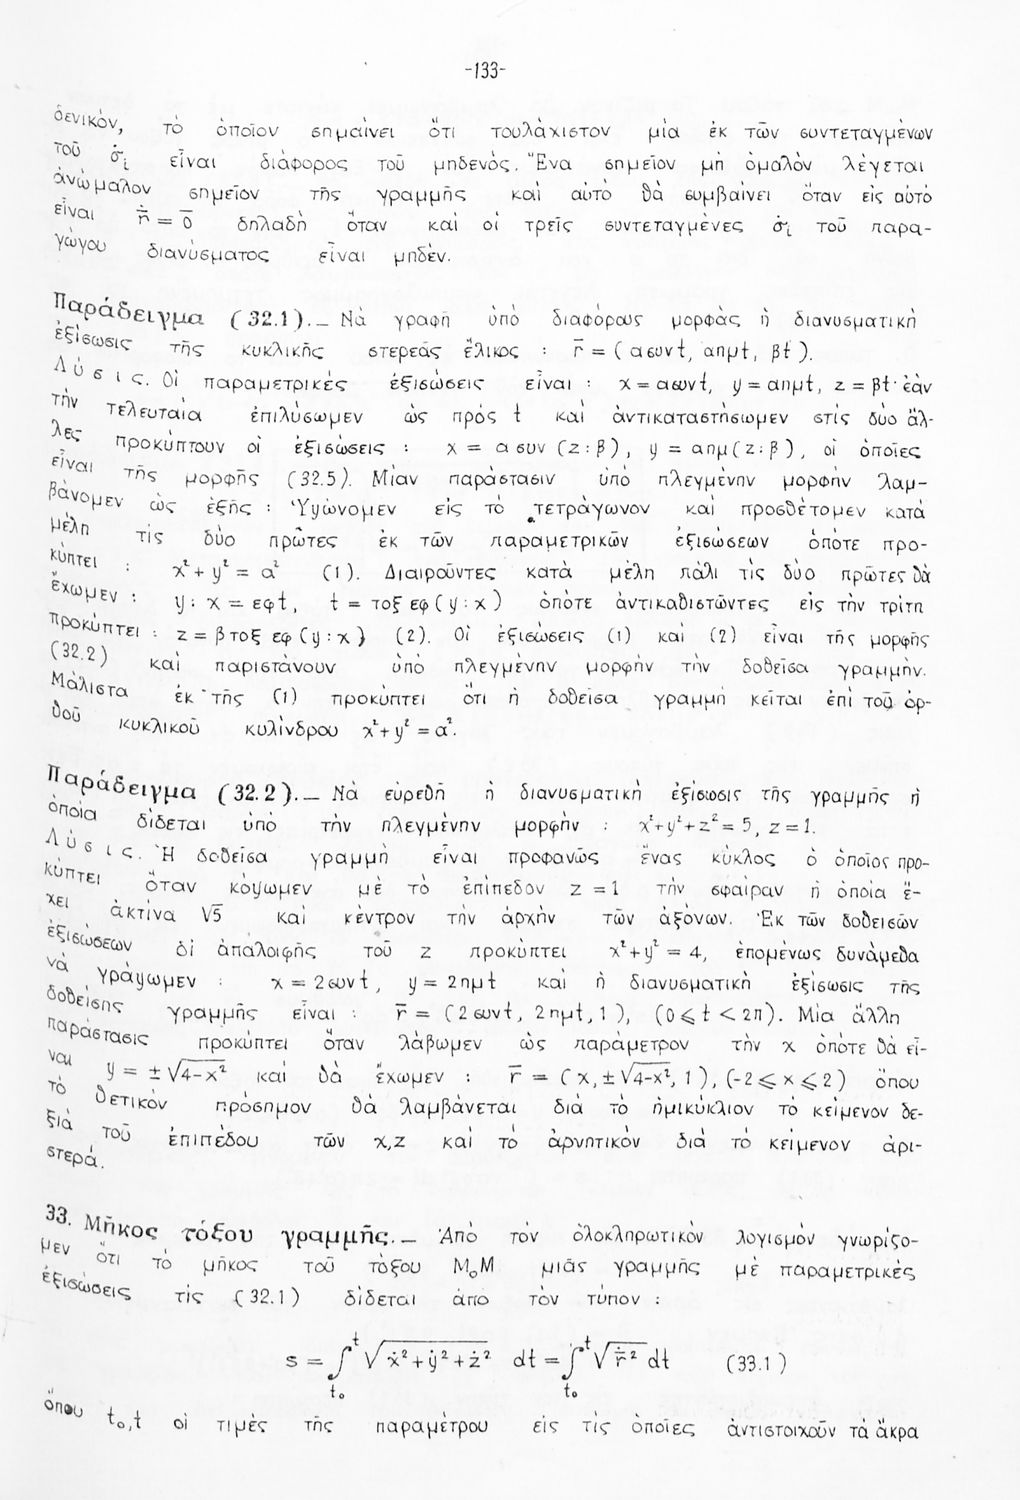 -133-
δενικόν, τὸ ὁποῖον σημαίνει ὅτι τουλάχιστον μία ἐκ τῶν συντεταγμένων
τοῦ σ̇ᵢ εἶναι διάφορος τοῦ μηδενός. Ἕνα σημεῖον μὴ ὁμαλὸν λέγεται
ἀνώμαλον σημεῖον τῆς γραμμῆς καὶ αὐτὸ θὰ συμβαίνει ὅταν εἰς αὐτὸ
εἶναι ṙ̄ = 0̄ δηλαδὴ ὅταν καὶ οἱ τρεῖς συντεταγμένες σ̇ᵢ τοῦ παρα-
γώγου διανύσματος εἶναι μηδέν.
Παράδειγμα (32.1).— Νὰ γραφῆ ὑπὸ διαφόρους μορφὰς ἡ διανυσματικὴ
ἐξίσωσις τῆς κυκλικῆς στερεᾶς ἕλικος : r̄ = (ασυνt, αημt, βt).
Λύσις. Οἱ παραμετρικές ἐξισώσεις εἶναι : x = ασυνt, y = αημt, z = βt· ἐὰν
τὴν τελευταία ἐπιλύσωμεν ὡς πρός t καὶ ἀντικαταστήσωμεν στίς δύο ἄλ-
λες προκύπτουν οἱ ἐξισώσεις : x = α συν (z:β), y = αημ(z:β), οἱ ὁποῖες
εἶναι τῆς μορφῆς (32.5). Μίαν παράστασιν ὑπὸ πλεγμένην μορφὴν λαμ-
βάνομεν ὡς ἑξῆς : Ὑψώνομεν εἰς τὸ τετράγωνον καὶ προσθέτομεν κατὰ
μέλη τὶς δύο πρῶτες ἐκ τῶν παραμετρικῶν ἐξισώσεων ὁπότε προ-
κύπτει : x² + y² = α² (1). Διαιροῦντες κατὰ μέλη πάλι τὶς δύο πρῶτες θὰ
ἔχωμεν : y : x = εφt, t = τοξ εφ (y : x) ὁπότε ἀντικαθιστῶντες εἰς τὴν τρίτη
προκύπτει : z = β τοξ εφ (y : x) (2). Οἱ ἐξισώσεις (1) καὶ (2) εἶναι τῆς μορφῆς
(32.2) καὶ παριστάνουν ὑπὸ πλεγμένην μορφὴν τὴν δοθεῖσα γραμμήν.
Μάλιστα ἐκ τῆς (1) προκύπτει ὅτι ἡ δοθεῖσα γραμμὴ κεῖται ἐπὶ τοῦ ὀρ-
θοῦ κυκλικοῦ κυλίνδρου x² + y² = α².
Παράδειγμα (32.2).— Νὰ εὑρεθῆ ἡ διανυσματικὴ ἐξίσωσις τῆς γραμμῆς ἡ
ὁποία δίδεται ὑπὸ τὴν πλεγμένην μορφὴν : x² + y² + z² = 5, z = 1.
Λύσις. Ἡ δοθεῖσα γραμμὴ εἶναι προφανῶς ἕνας κύκλος ὁ ὁποῖος προ-
κύπτει ὅταν κόψωμεν μὲ τὸ ἐπίπεδον z = 1 τὴν σφαῖραν ἡ ὁποία ἔ-
χει ἀκτίνα √5 καὶ κέντρον τὴν ἀρχὴν τῶν ἀξόνων. Ἐκ τῶν δοθεισῶν
ἐξισώσεων δι' ἀπαλοιφῆς τοῦ z προκύπτει x² + y² = 4, ἑπομένως δυνάμεθα
νὰ γράψωμεν : x = 2συνt, y = 2ημt καὶ ἡ διανυσματικὴ ἐξίσωσις τῆς
δοθείσης γραμμῆς εἶναι : r̄ = (2συνt, 2ημt, 1), (0 ⩽ t < 2π). Μία ἄλλη
παράστασις προκύπτει ὅταν λάβωμεν ὡς παράμετρον τὴν x ὁπότε θὰ εἶ-
ναι y = ±√4-x² καὶ θὰ ἔχωμεν : r̄ = (x, ±√4-x², 1), (-2 ⩽ x ⩽ 2) ὅπου
τὸ θετικὸν πρόσημον θὰ λαμβάνεται διὰ τὸ ἡμικύκλιον τὸ κείμενον δε-
ξιὰ τοῦ ἐπιπέδου τῶν x,z καὶ τὸ ἀρνητικὸν διὰ τὸ κείμενον ἀρι-
στερά.
33. Μῆκος τόξου γραμμῆς.— Ἀπὸ τὸν ὁλοκληρωτικὸν λογισμὸν γνωρίζο-
μεν ὅτι τὸ μῆκος τοῦ τόξου M₀M μιᾶς γραμμῆς μὲ παραμετρικές
ἐξισώσεις τὶς (32.1) δίδεται ἀπὸ τὸν τύπον :
s = ∫ₜ₀ᵗ √ẋ² + ẏ² + ż² dt = ∫ₜ₀ᵗ √ṙ̄² dt (33.1)
ὅπου t₀,t οἱ τιμὲς τῆς παραμέτρου εἰς τὶς ὁποῖες ἀντιστοιχοῦν τὰ ἄκρα